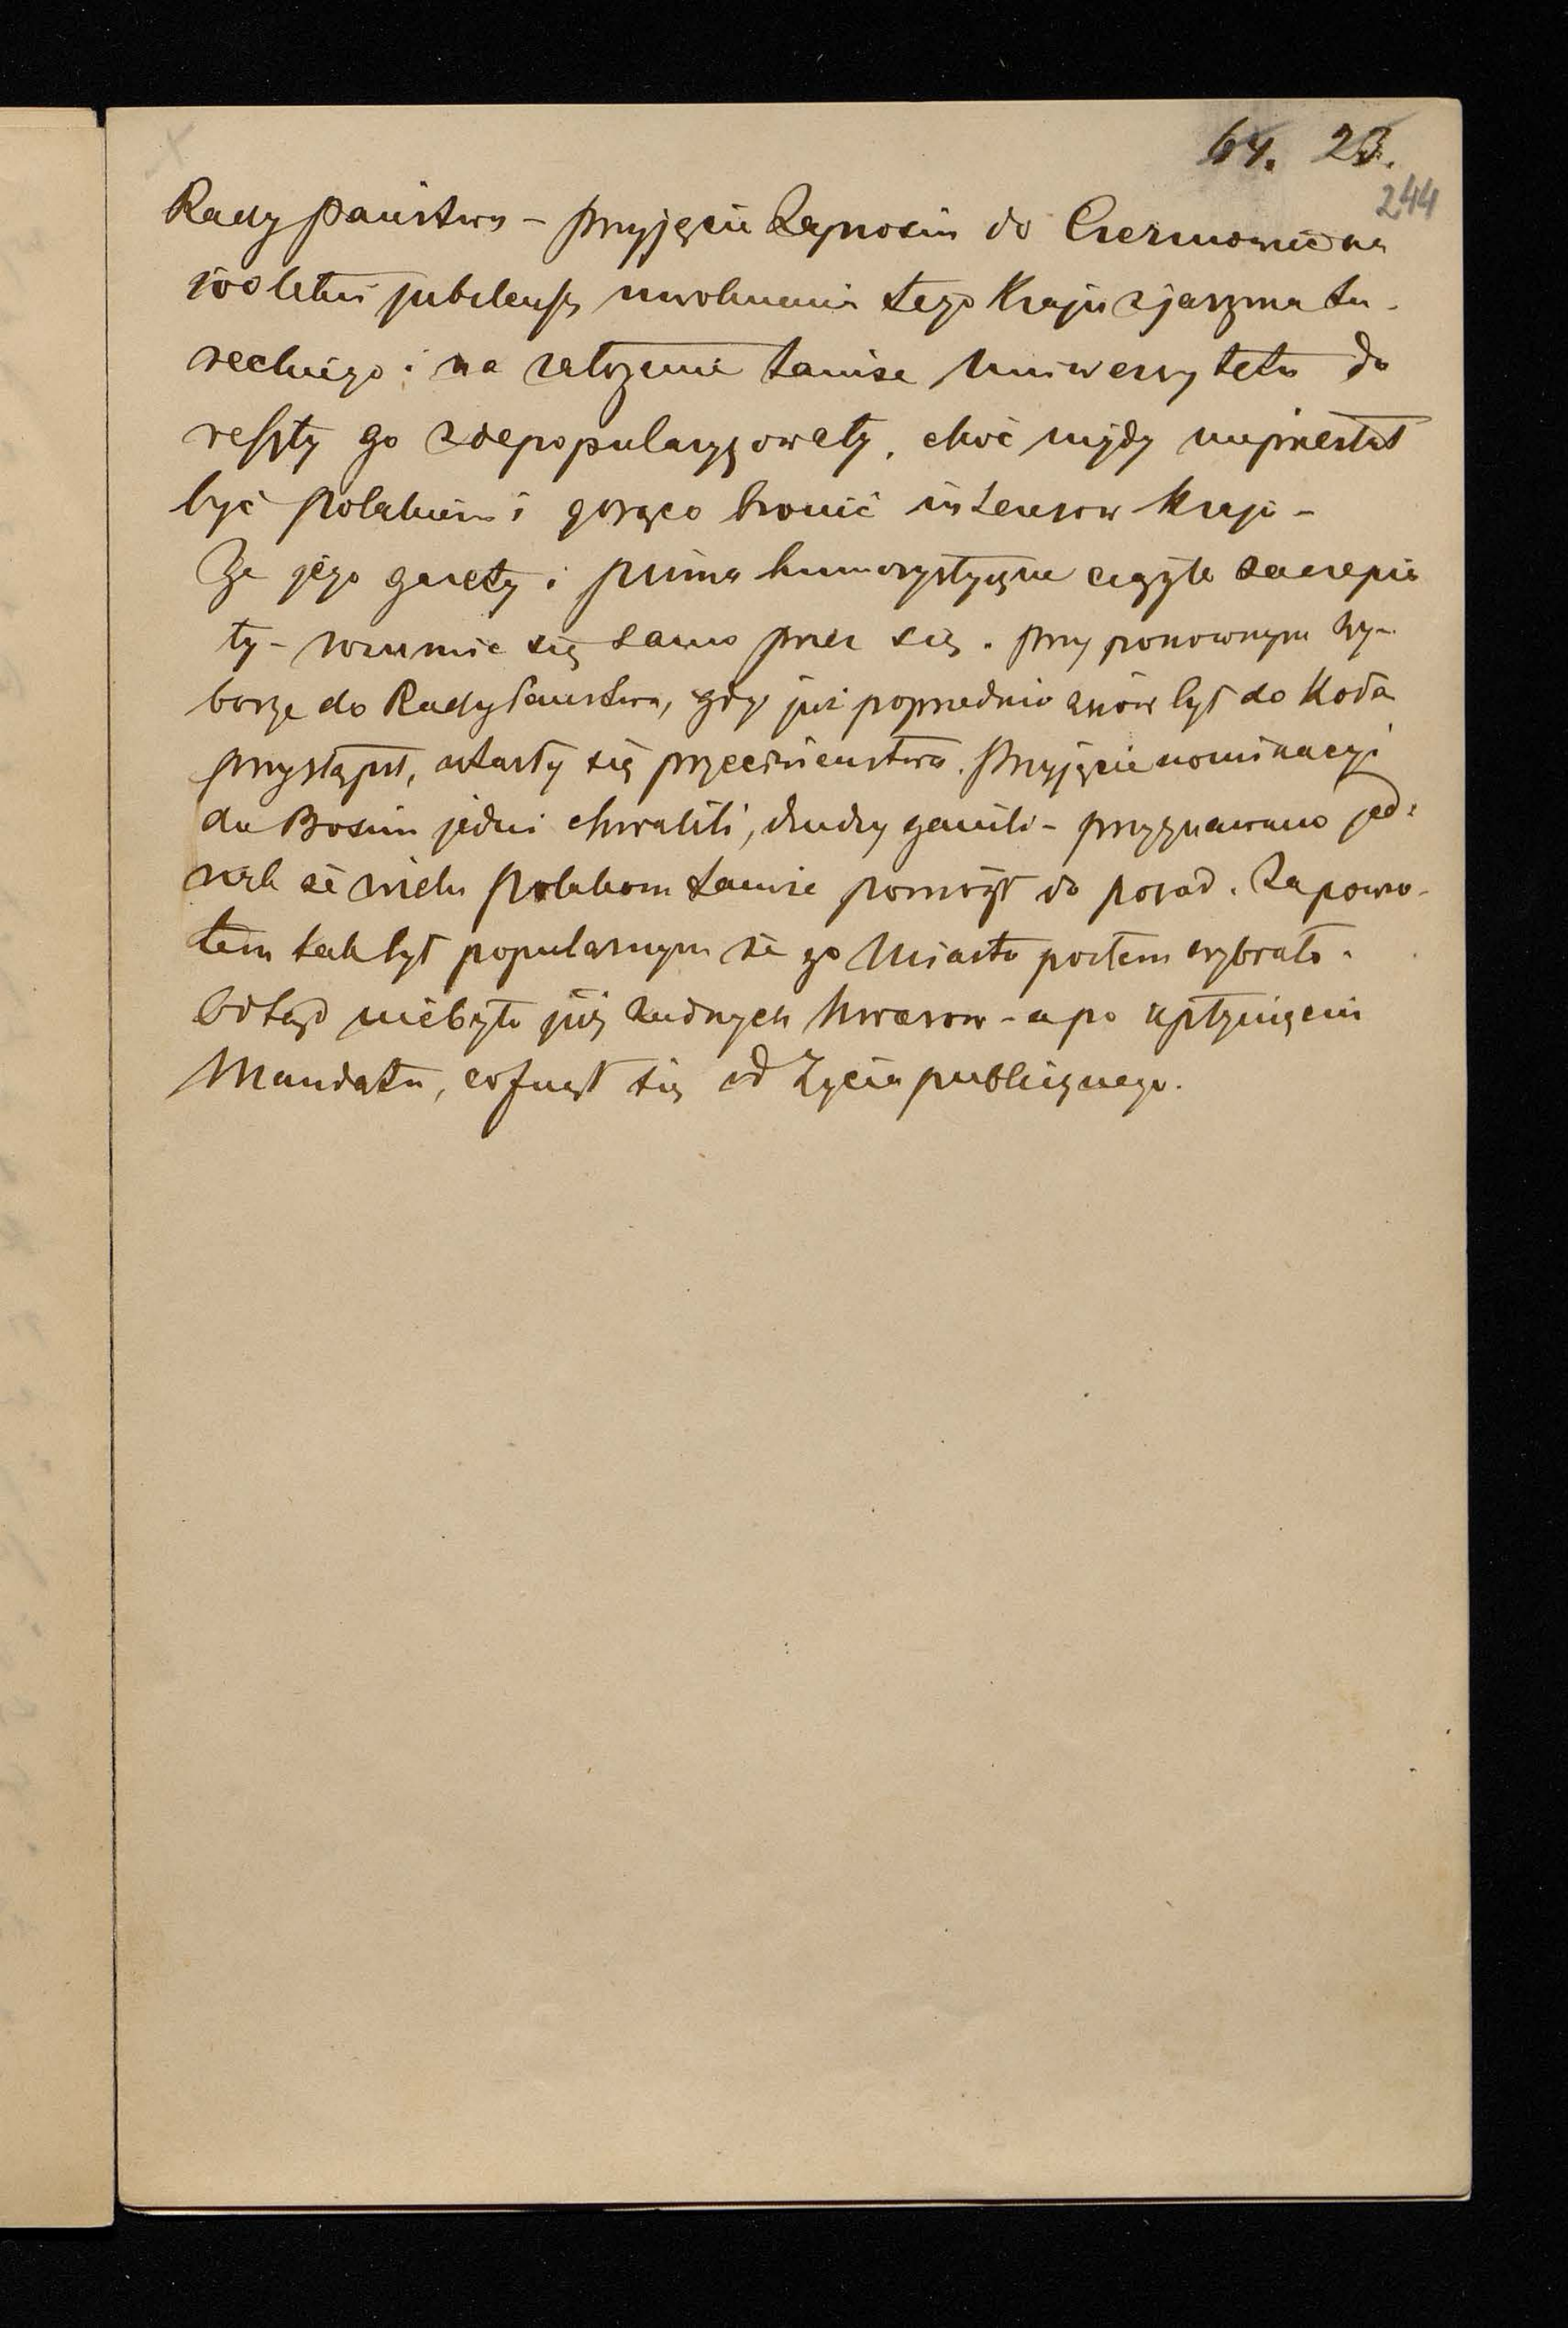 64. 23.
244
Rady Państwa - przyjęcie Zaprosin do Czerniowiec na
100 letni jubileusz uwolnienia tego Kraju z jarzma tu-
reckiego i na założenie tamże Uniwersytetu do
reszty go zdepopularyzowały, choć nigdy nieprzestał
być Polakiem i gorąco bronić interesow Kraju -
Że jego gazety i pisma humorystyczne ciągle zaczepia
ły - rozumie się samo przez się. Przy ponownym Wy-
borze do Rady Państwa, gdy już poprzednio znów był do Koła
przystąpił, starły się przeciwieństwa. Przyjęcie nominacyi
do Bosnii jedni chwalili, drudzy ganili - przyznawano jed-
nak że wielu Polakom tamże pomógł do posad. Za powro-
tem tak był popularnym że go Miasto posłem wybrało.
Odtąd niebyło już żadnych kwasow - a po upłynięciu
Mandatu, cofnął się od Życia publicznego.